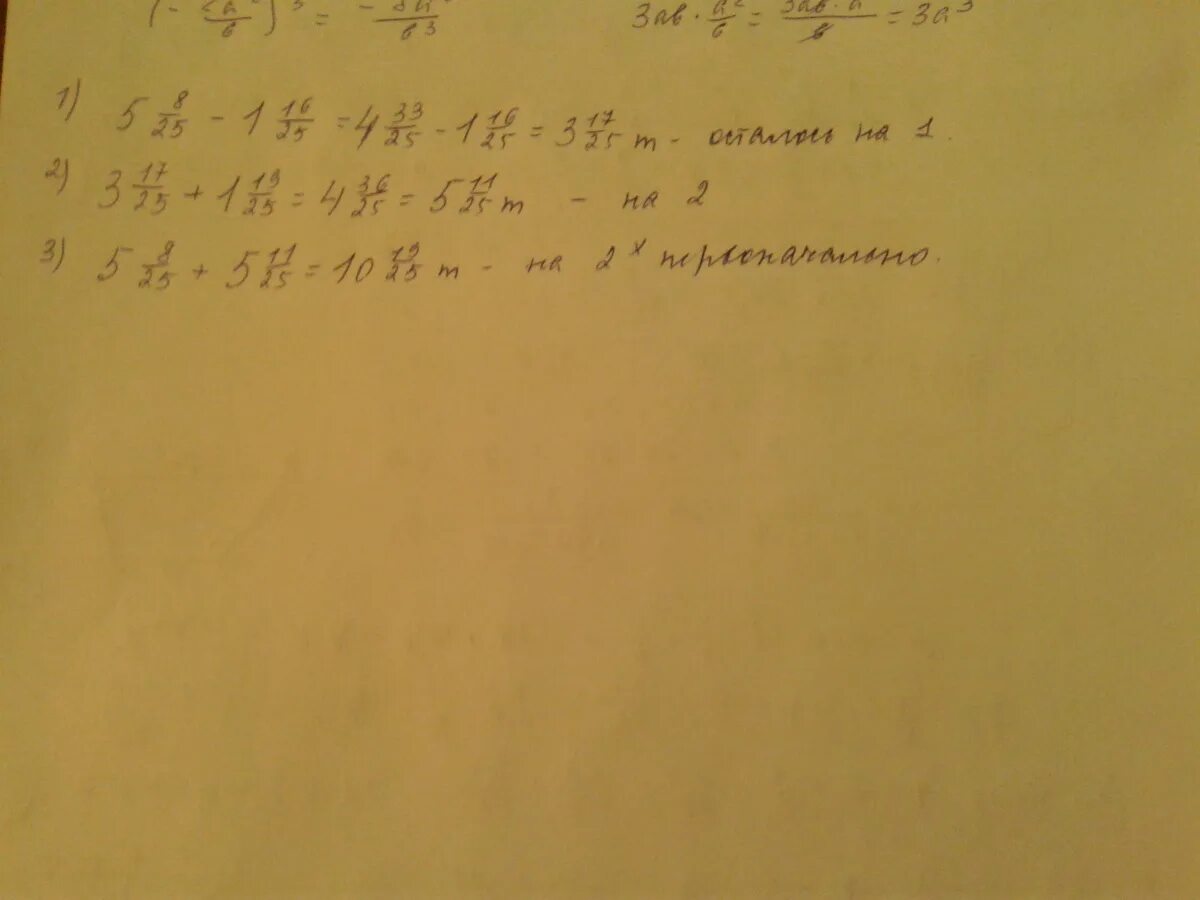 = 3ab · a²/b = 3ab · a²/b = 3a³
1) 5 8/25 - 1 16/25 = 4 33/25 - 1 16/25 = 3 17/25 т - осталось на 1.
2) 3 17/25 + 1 19/25 = 4 36/25 = 5 11/25 т - на 2
3) 5 8/25 + 5 11/25 = 10 19/25 т - на 2ˣ первоначально.